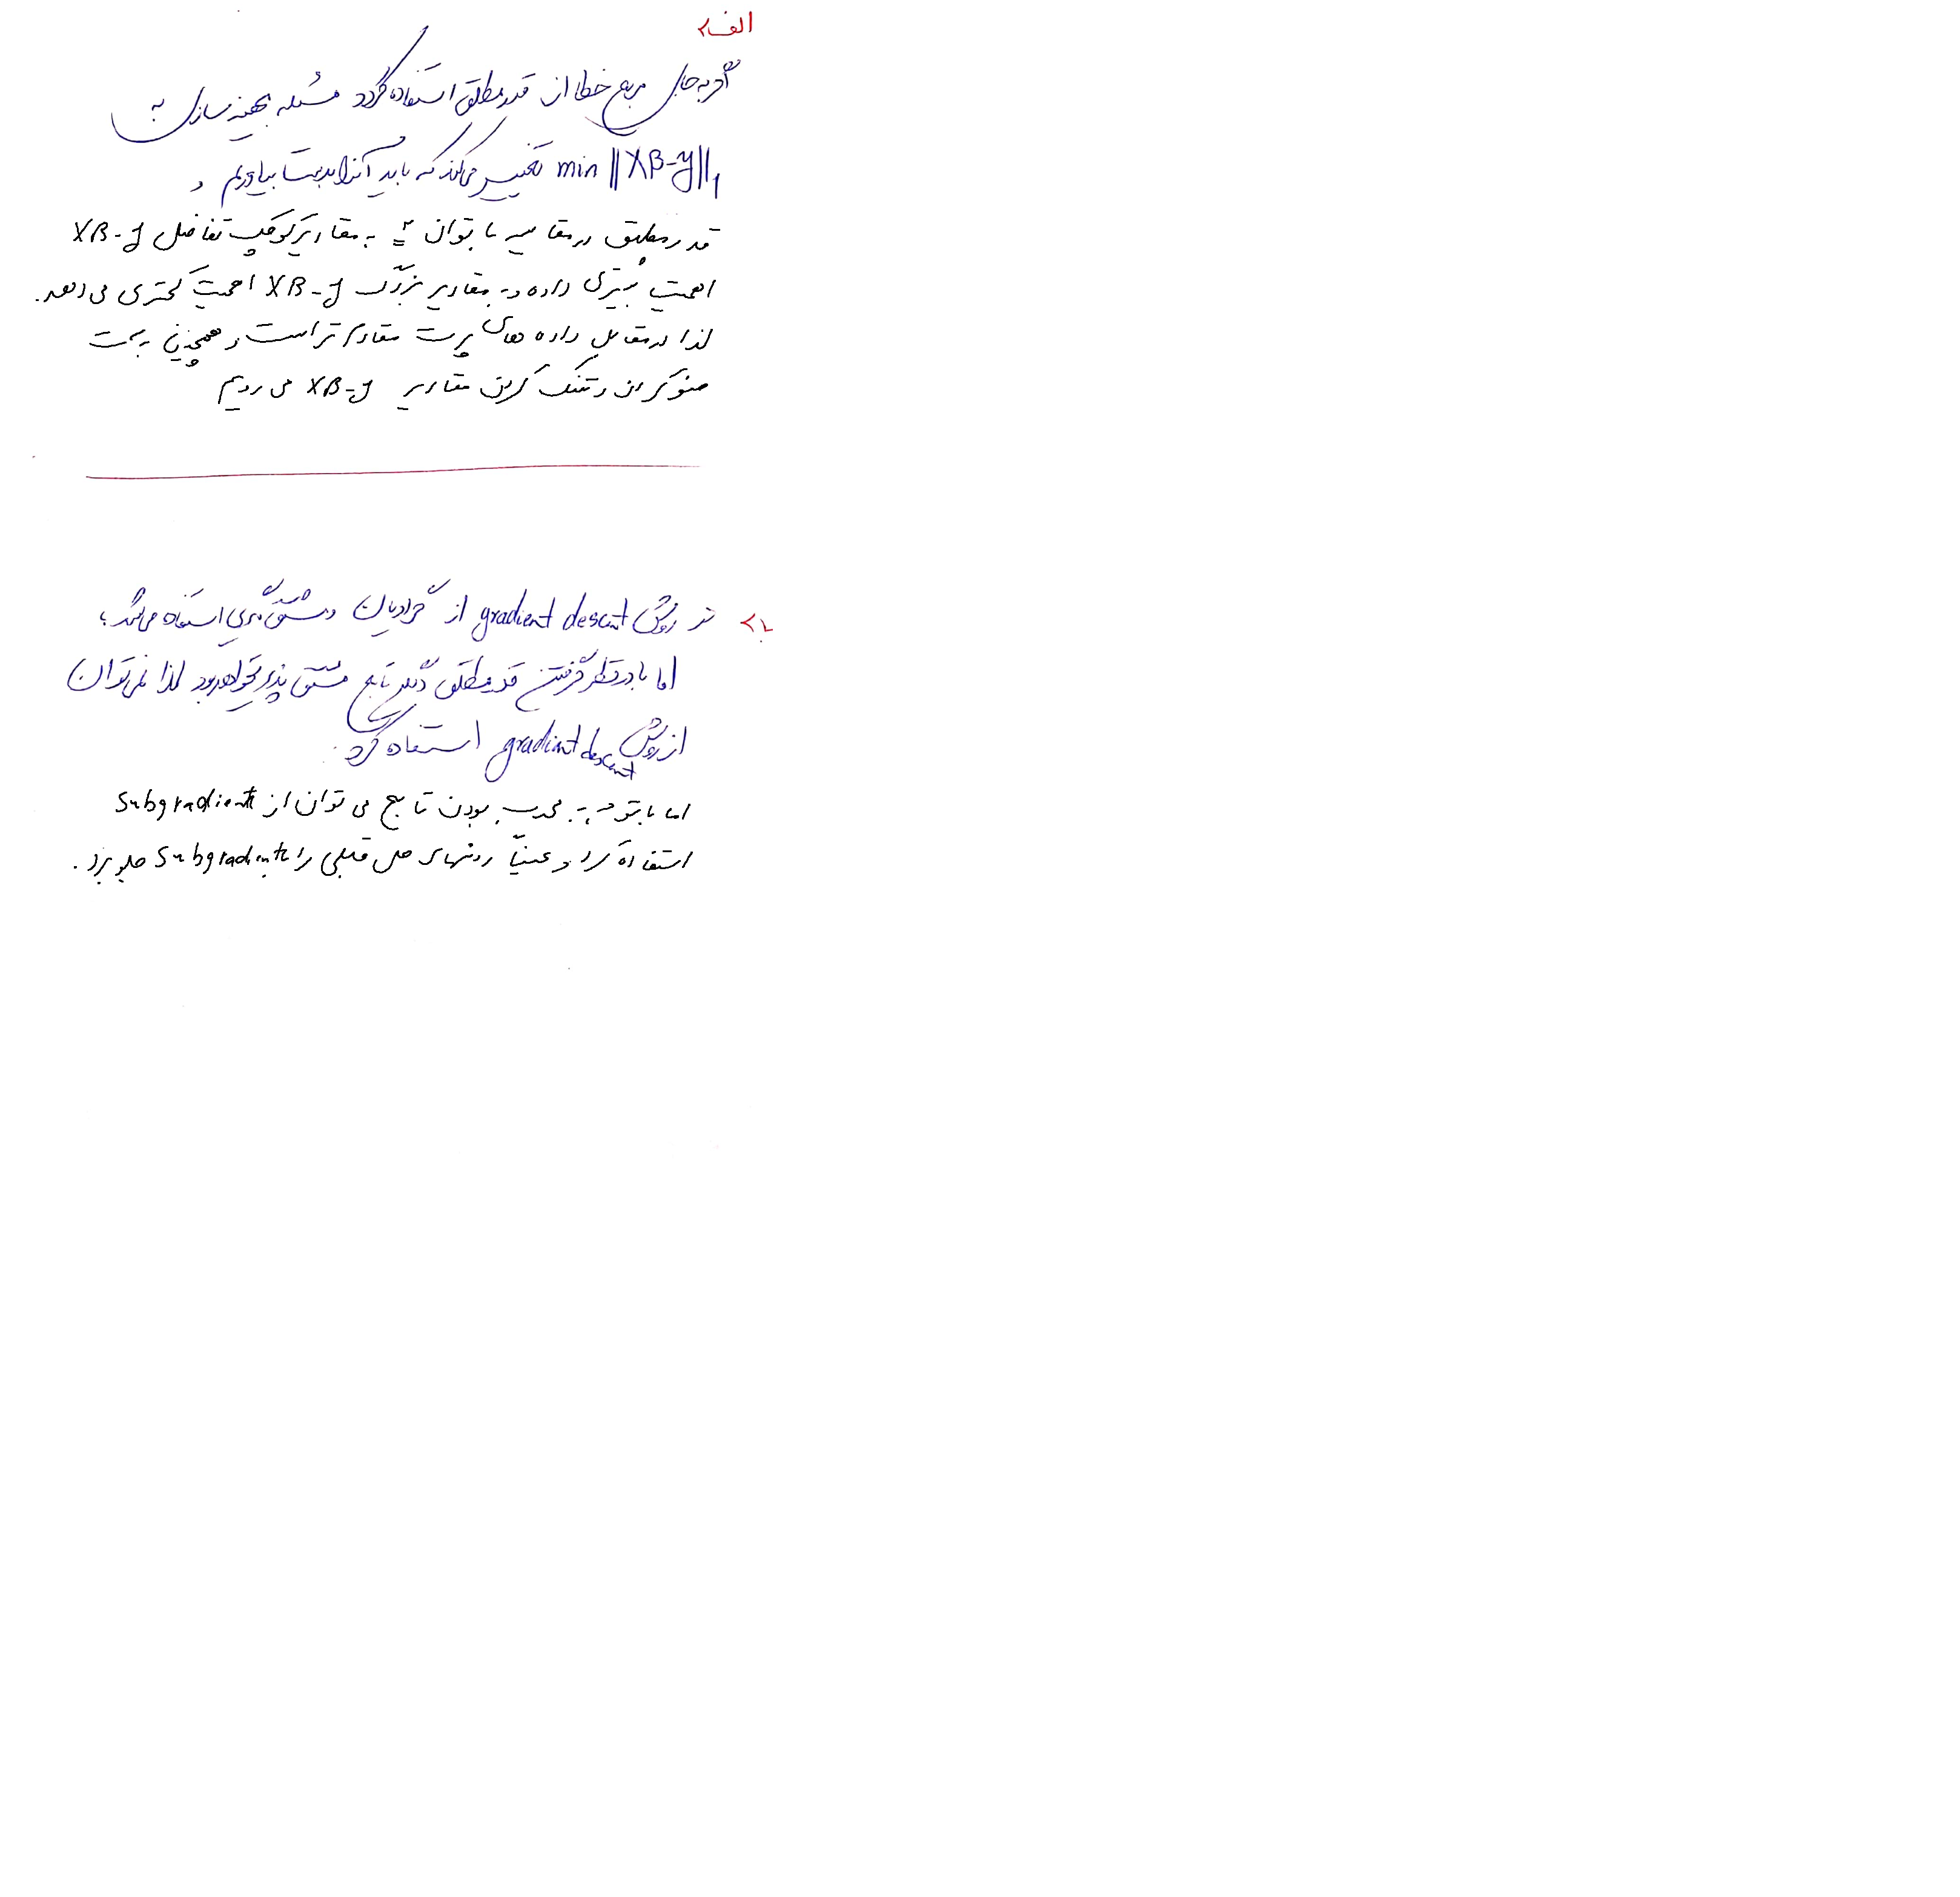 الف>
اگر به جای مربع خطا از قدرمطلق استفاده گردد مسئله بهینه سازی به
min ||Xβ-y||₁ تغییر می‌کند که باید آنرا بدست بیاوریم و
قدر مطلق در مقایسه با توان ۲ به مقادیر کوچک تفاضل Xβ-y
اهمیت بیتری داده و به مقادیر بزرگ Xβ-y اهمیت کمتری می دهد.
لذا در مقابل داده های پرت مقاوم تر است و همچنین به سمت
صفر کردن و تنک کردن مقادیر Xβ-y می رویم
ب> در روش gradient descent از گرادیان و مشتق گیری استفاده می‌گردد؛
اما با در نظر گرفتن قدرمطلق دیگر تابع مشتق پذیر نخواهد بود لذا نمی توان
از روش gradient descent استفاده کرد.
اما با توجه به محدب بودن تابع می توان از Subgradient
استفاده کرد و عیناً روشهای حل قبلی را با Subgradient جلو برد.